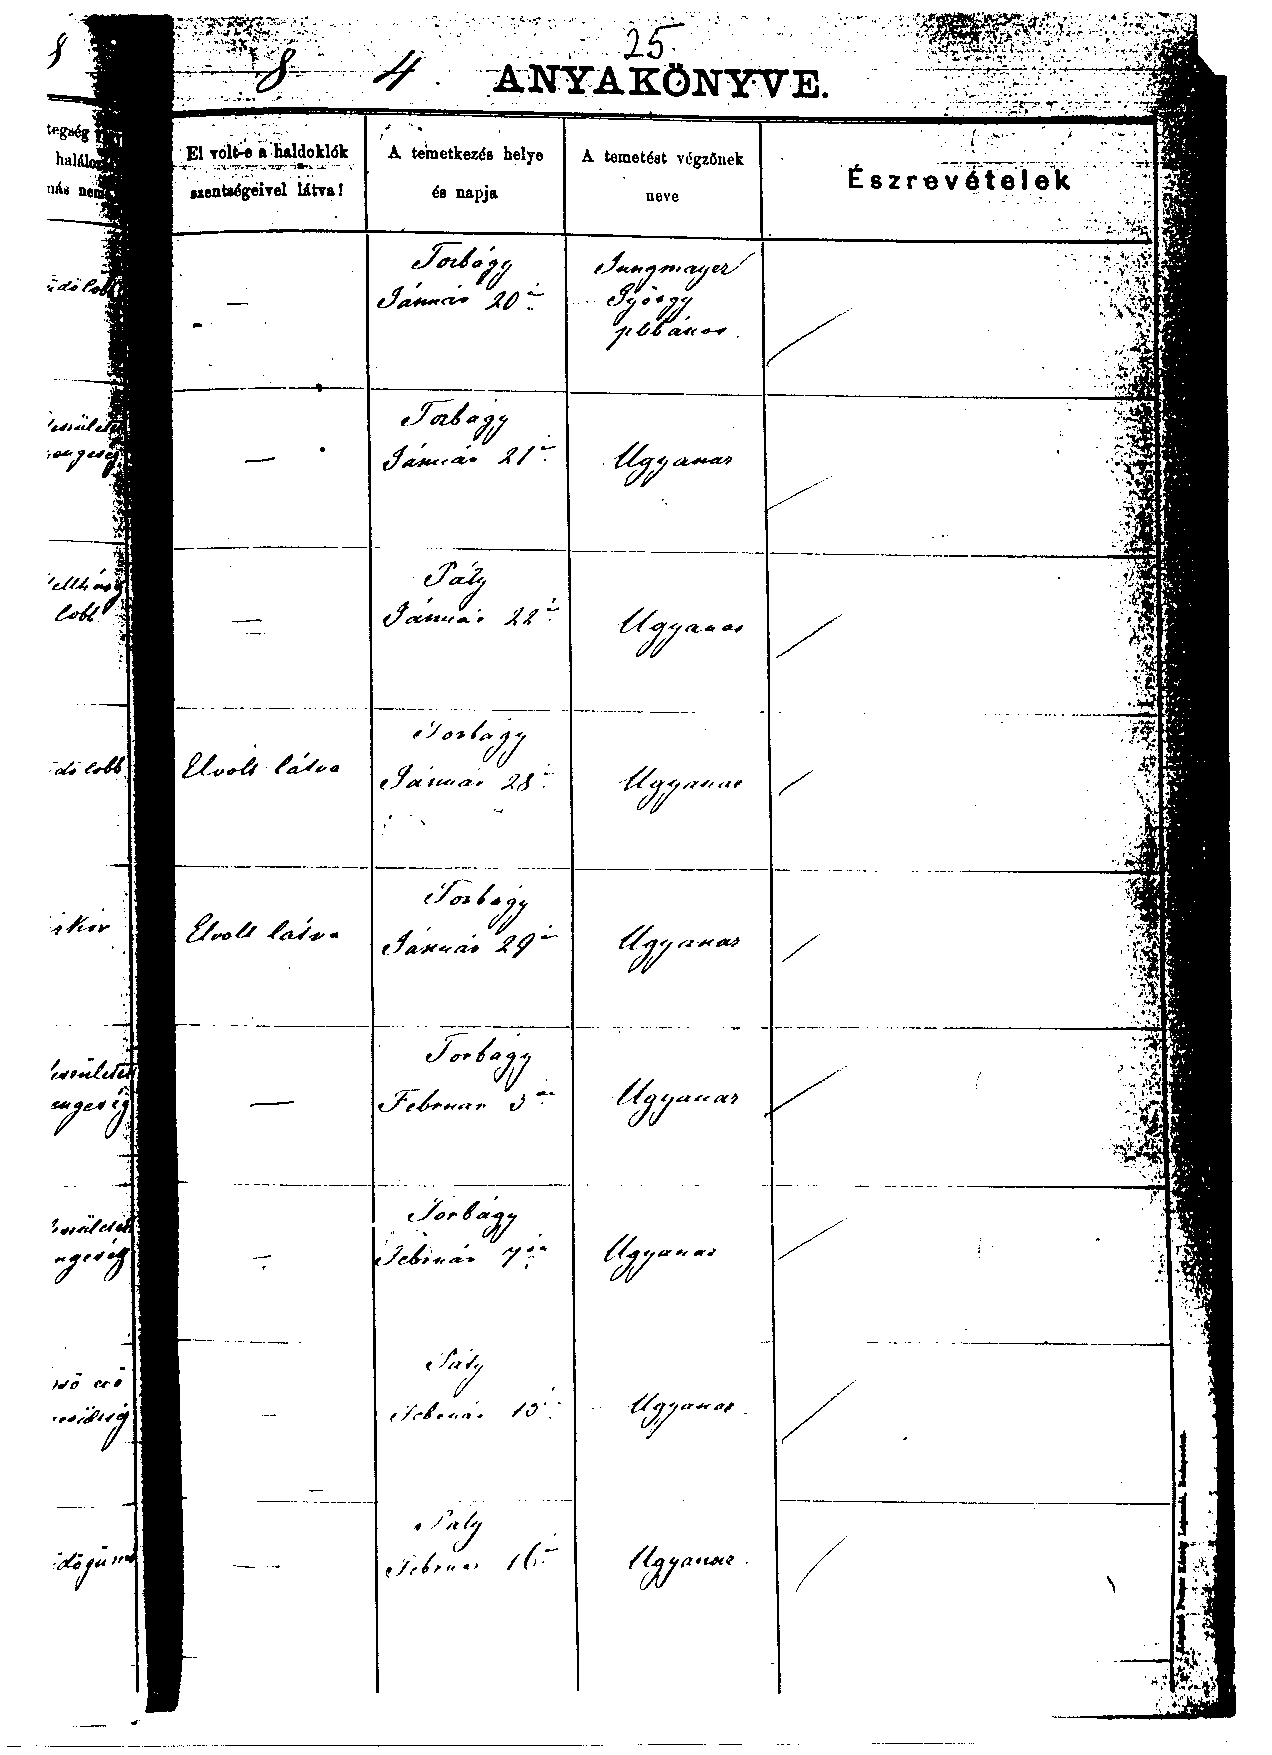 25.
8 8 4. ANYAKÖNYVE.
tegség
halálo
nás nem
El volt-e a haldoklók
szentségeivel látva?
A temetkezés helye
és napja
A temetést végzőnek
neve
Észrevételek
üdő lobb
—
Torbágy
Január 20án
Jungmayer
György
plébános.
—
Torbágy
Január 21én
Ugyanaz
—
Pály
Január 22én
Ugyanaz
lobb
dő lobb
Elvolt látva
Torbágy
Január 28án
Ugyanaz
kór
Elvolt látva
Torbágy
Január 29én
Ugyanaz
—
Torbágy
Február 3án
Ugyanaz
—
Torbágy
Február 7én
Ugyanaz
—
Pály
Február 15én
Ugyanaz
—
Pály
Február 16án
Ugyanaz.